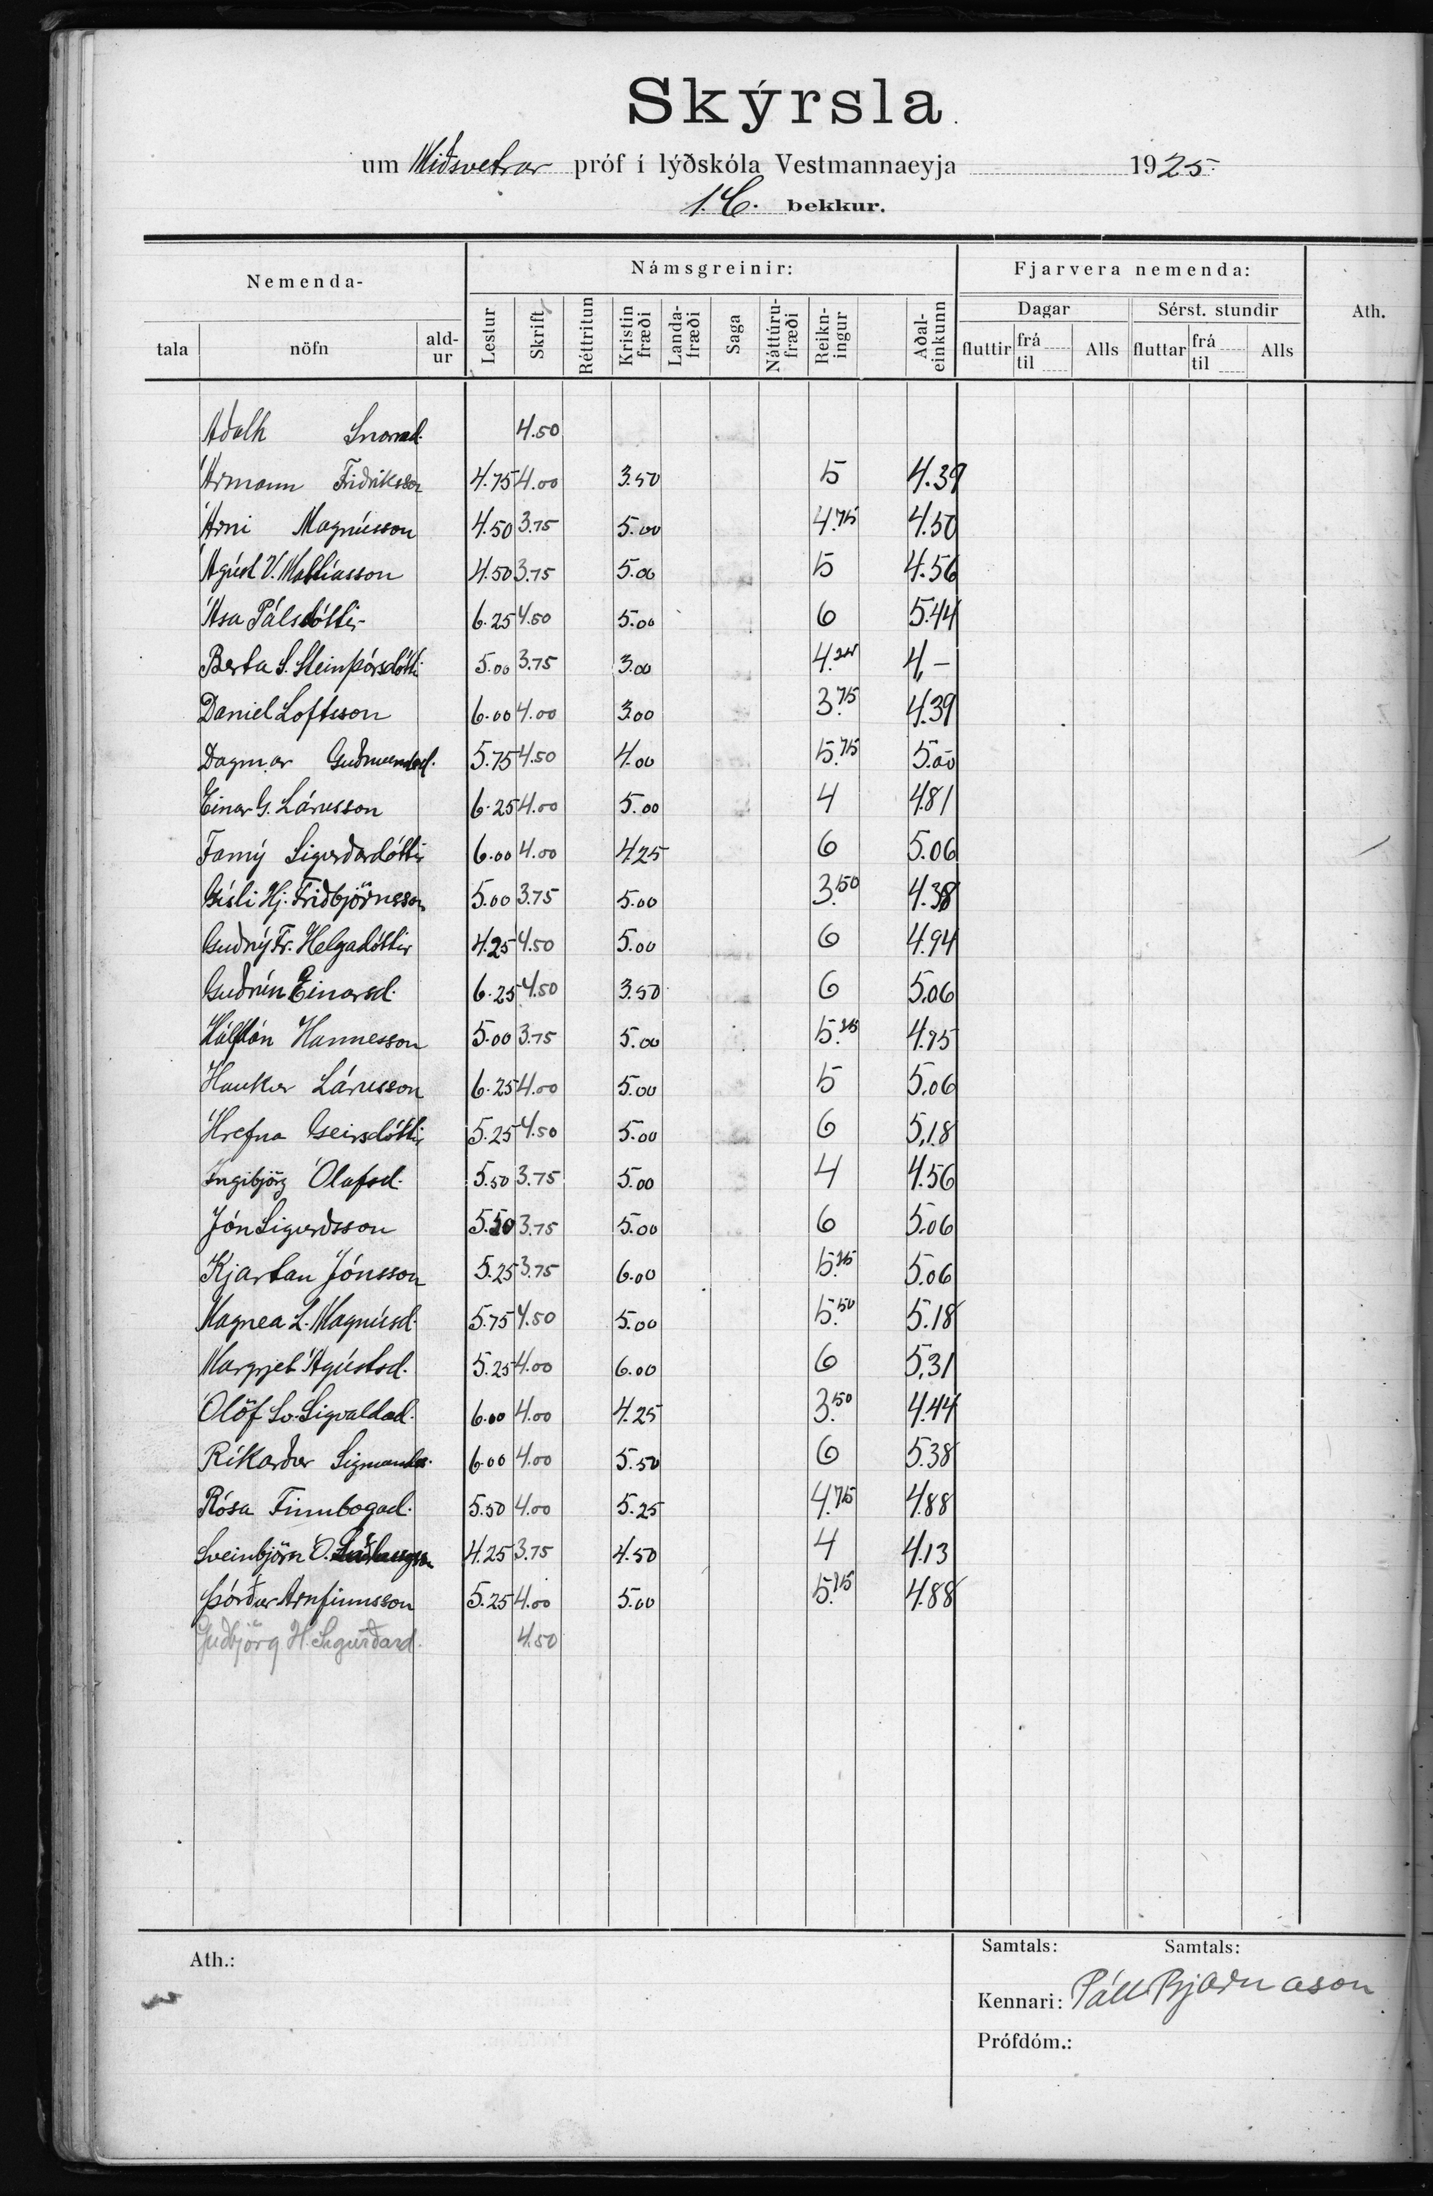 Skýrsla
um Miðsvetrar próf í lýðskóla Vestmannaeyja 1925.
1. C. bekkur.
Nemenda- Námsgreinir: Fjarvera nemenda: Ath.
Dagar Sérst. stundir
tala nöfn ald-ur Lestur Skrift Réttritun Kristin fræði Landa-fræði Saga Náttúru-fræði Reikn-ingur Aðal-einkunn fluttir frá til Alls fluttar frá til Alls
Aðalh Snorrad. 4.50
Ármann Friðriksson 4.75 4.00 3.50 5 4.39
Árni Magnússon 4.50 3.75 5.00 4.75 4.50
Ágúst V. Mattíasson 4.50 3.75 5.00 5 4.56
Ása Pálsdóttir 6.25 4.50 5.00 6 5.44
Berta S. Steinþórsdótti 5.00 3.75 3.00 4.25 4,-
Daniel Loftsson 6.00 4.00 3.00 3.75 4.39
Dagmar Guðmundsd. 5.75 4.50 4.00 5.75 5.00
Einar G. Lárusson 6.25 4.00 5.00 4 4.81
Fanný Sigurðardóttir 6.00 4.00 4.25 6 5.06
Gísli Hj. Friðbjörnsson 5.00 3.75 5.00 3.50 4.38
Guðný Fr. Helgadóttir 4.25 4.50 5.00 6 4.94
Guðrún Einarsd. 6.25 4.50 3.50 6 5.06
Hálfdán Hannesson 5.00 3.75 5.00 5.25 4.75
Haukur Lárusson 6.25 4.00 5.00 5 5.06
Hrefna Geirsdóttir 5.25 4.50 5.00 6 5,18
Ingibjörg Ólafsd. 5.50 3.75 5.00 4 4.56
Jón Sigurðsson 5.50 3.75 5.00 6 5.06
Kjartan Jónsson 5.25 3.75 6.00 5.25 5.06
Magnea L. Magnúsd. 5.75 4.50 5.00 5.50 5.18
Margrjet Ágústsd. 5.25 4.00 6.00 6 5,31
Ólöf Sv. Sigvaldad. 6.00 4.00 4.25 3.50 4.44
Ríkarður Sigmunds. 6.00 4.00 5.50 6 5.38
Rósa Finnbogad. 5.50 4.00 5.25 4.75 4.88
Sveinbjörn Ó. 4.25 3.75 4.50 4 4.13
Þórður Arnfinnsson 5.25 4.00 5.00 5.25 4.88
Guðbjörg H. Sigurðard. 4.50
Ath.: Samtals: Samtals:
Kennari: Páll Bjarnason
Prófdóm.: